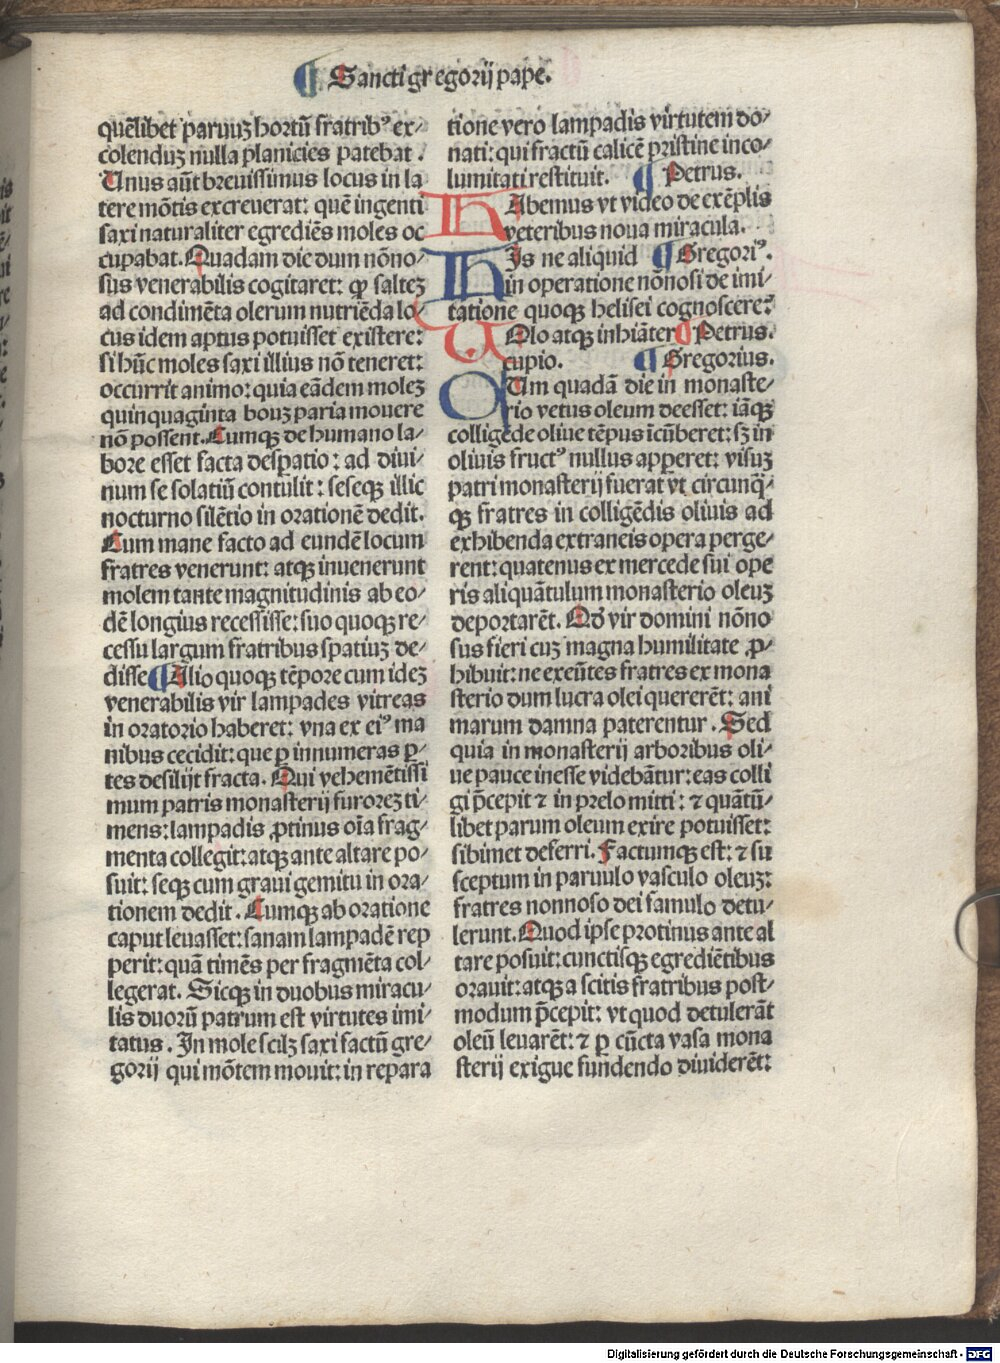 ¶ Sancti gregorij pape.
quēlibet paruuꝫ hortū fratribꝰ ex⸗
colenduꝫ nulla planicies patebat.
Unus aūt breuissimus locus in la
tere mōtis excreuerat: quē ingenti
saxi naturaliter egrediēs moles oc
cupabat. Quadam die dum nōno⸗
sus venerabilis cogitaret: ꝙ salteꝫ
ad condimēta olerum nutriēda lo⸗
cus idem aptus potuisset existere:
si hūc moles saxi illius nō teneret:
occurrit animo: quia eādem moleꝫ
quinquaginta bouꝫ paria mouere
nō possent. Cumqꝫ de humano la⸗
bore esset facta desꝑatio: ad diui⸗
num se solatiū contulit: seseqꝫ illic
nocturno silētio in orationē dedit.
Cum mane facto ad eundē locum
fratres venerunt: atqꝫ inuenerunt
molem tante magnitudinis ab eo⸗
dē longius recessisse: suo quoqꝫ re⸗
cessu largum fratribus spatiuꝫ de⸗
disse ¶ Alio quoqꝫ tēpore cum ideꝫ
venerabilis vir lampades vitreas
in oratorio haberet: vna ex eiꝰ ma
nibus cecidit: que ꝑ innumeras ꝑ⸗
tes desilijt fracta. Qui vehemētissi
mum patris monasterij furoreꝫ ti⸗
mens: lampadis ꝓtinus oīa frag⸗
menta collegit: atqꝫ ante altare po⸗
suit: seqꝫ cum graui gemitu in ora⸗
tionem dedit. Cumqꝫ ab oratione
caput leuasset: sanam lampadē rep
perit: quā timēs per fragmēta col⸗
legerat. Sicqꝫ in duobus miracu⸗
lis duorū patrum est virtutes imi⸗
tatus. In mole scilꝫ saxi factū gre⸗
gorij qui mōtem mouit: in repara
tione vero lampadis virtutem do⸗
nati: qui fractū calicē pristine inco⸗
lumitati restituit. ¶ Petrus.
HAbemus vt video de exēplis
veteribus noua miracula.
HIs ne aliquid ¶ Gregoriꝰ.
in operatione nōnosi de imi⸗
tatione quoqꝫ helisei cognoscere?
UOlo atqꝫ inhiāter ¶ Petrus.
cupio. ¶ Gregorius.
CUm quadā die in monaste⸗
rio vetus oleum deesset: iāqꝫ
colligēde oliue tēpus īcūberet: sꝫ in
oliuis fructꝰ nullus apperet: visuꝫ
patri monasterij fuerat vt circunq̄⸗
qꝫ fratres in colligēdis oliuis ad
exhibenda extraneis opera perge⸗
rent: quatenus ex mercede sui ope
ris aliquātulum monasterio oleuꝫ
deportarēt. Qd̄ vir domini nōno
sus fieri cuꝫ magna humilitate ꝓ⸗
hibuit: ne exeūtes fratres ex mona
sterio dum lucra olei quererēt: ani
marum damna paterentur. Sed
quia in monasterij arboribus oli⸗
ue pauce inesse videbātur: eas colli
gi p̄cepit ⁊ in prelo mitti: ⁊ quātū⸗
libet parum oleum exire potuisset:
sibimet deferri. Factumqꝫ est: ⁊ su
sceptum in paruulo vasculo oleuꝫ:
fratres nonnoso dei famulo detu⸗
lerunt. Quod ipse protinus ante al
tare posuit: cunctisqꝫ egrediētibus
orauit: atqꝫ a scitis fratribus post⸗
modum p̄cepit: vt quod detulerāt
oleū leuarēt: ⁊ ꝑ cūcta vasa mona
sterij exigue fundendo diuiderēt:
Digitalisierung gefördert durch die Deutsche Forschungsgemeinschaft - DFG